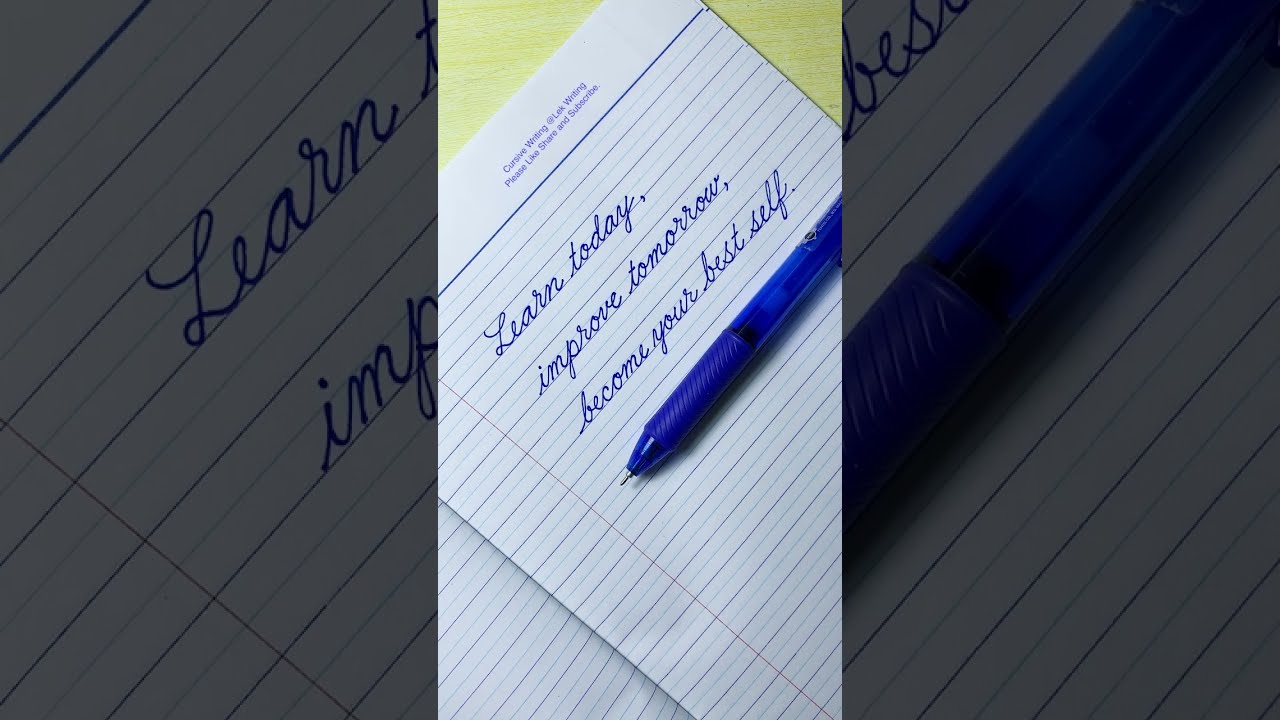 Cursive Writing @Lek Writing
Please Like Share and Subscribe.
Learn today,
improve tomorrow,
become your best self.